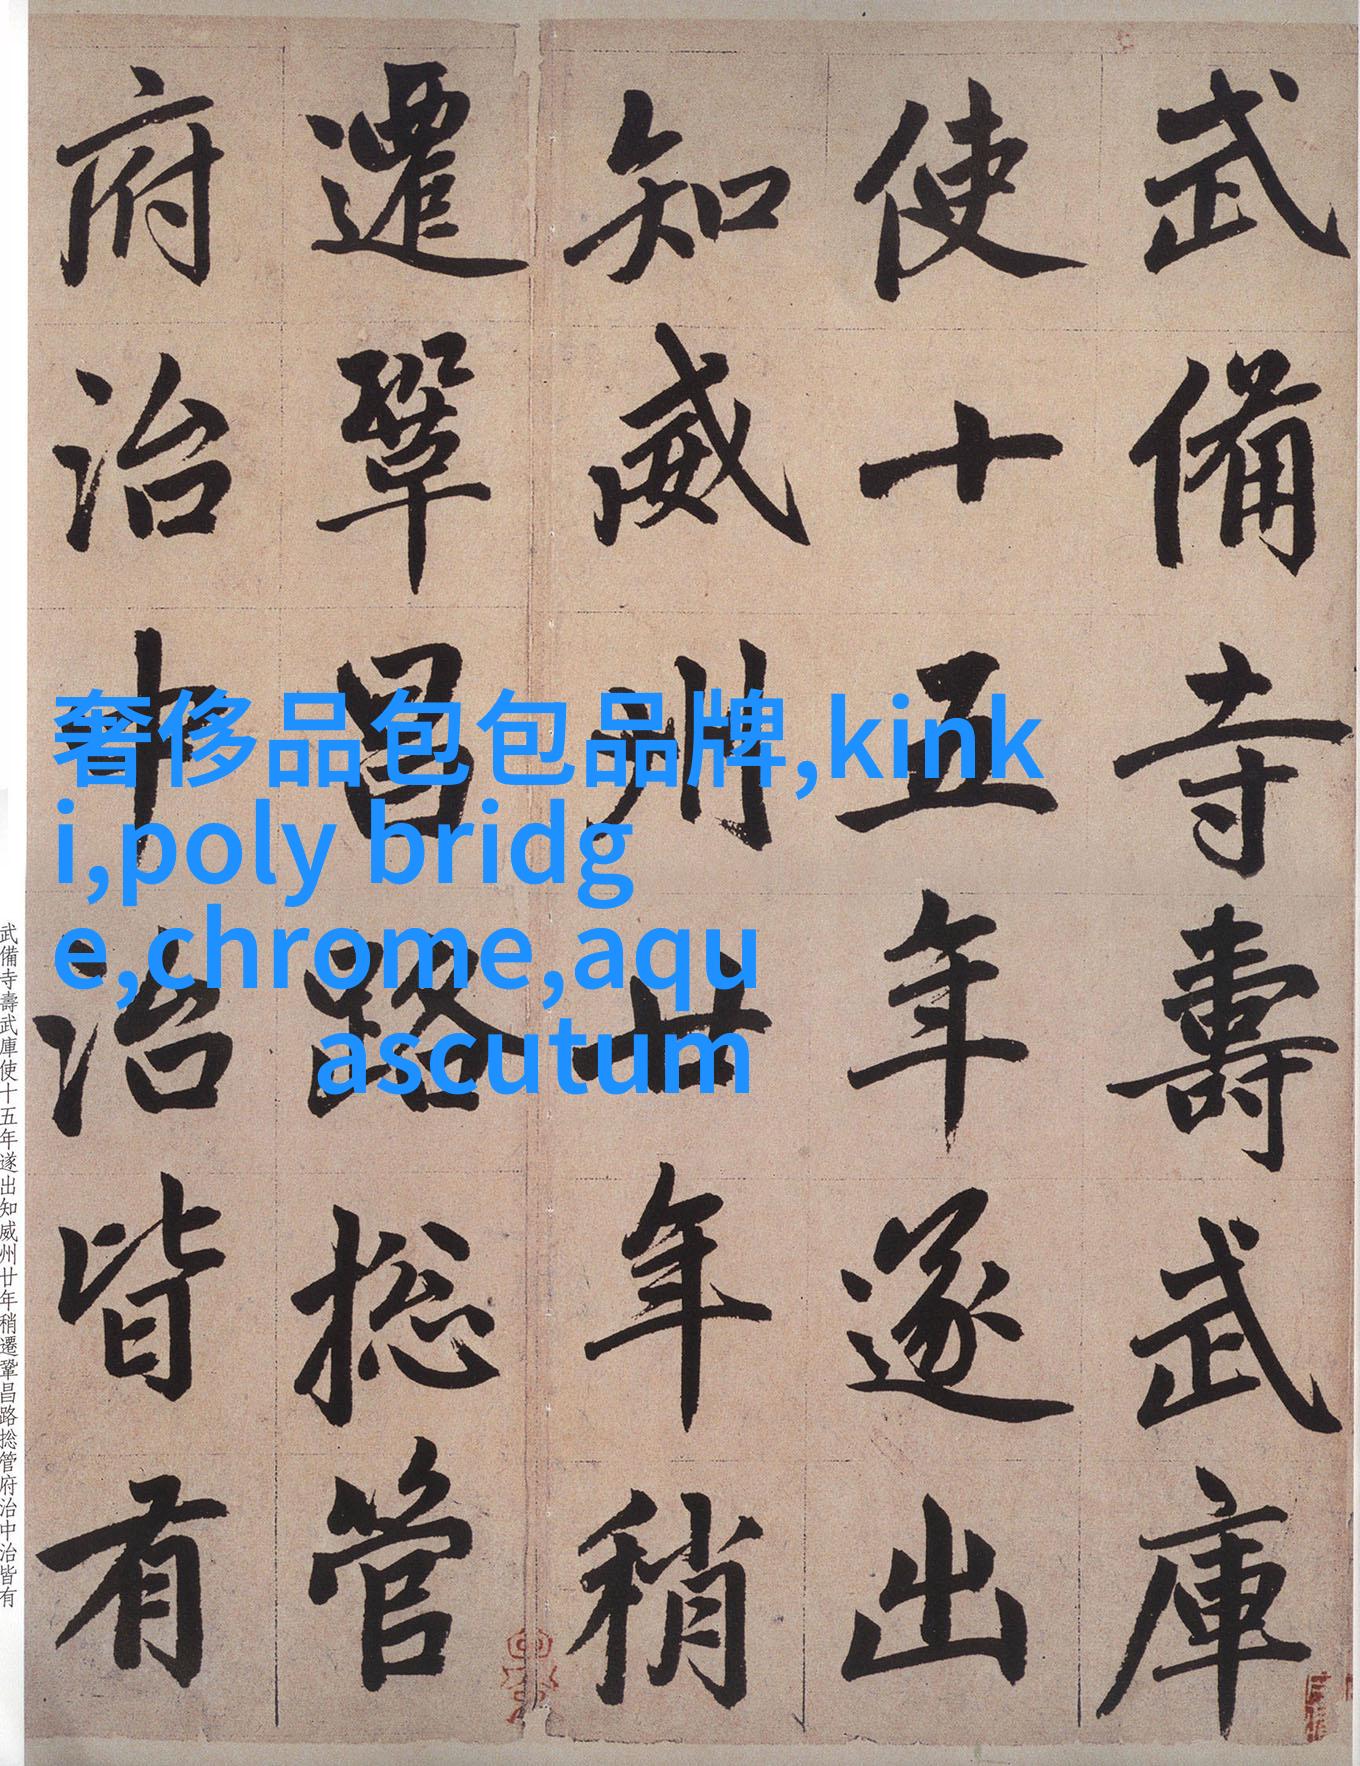 武備寺壽武庫
使十五年遂出
知威州廿年稍
遷鞏昌路捴管
府治中治皆有
奢侈品包包品牌,kink
i,poly bridg
e,chrome,aqu
ascutum
武備寺壽武庫使十五年遂出知威州廿年稍遷鞏昌路捴管府治中治皆有